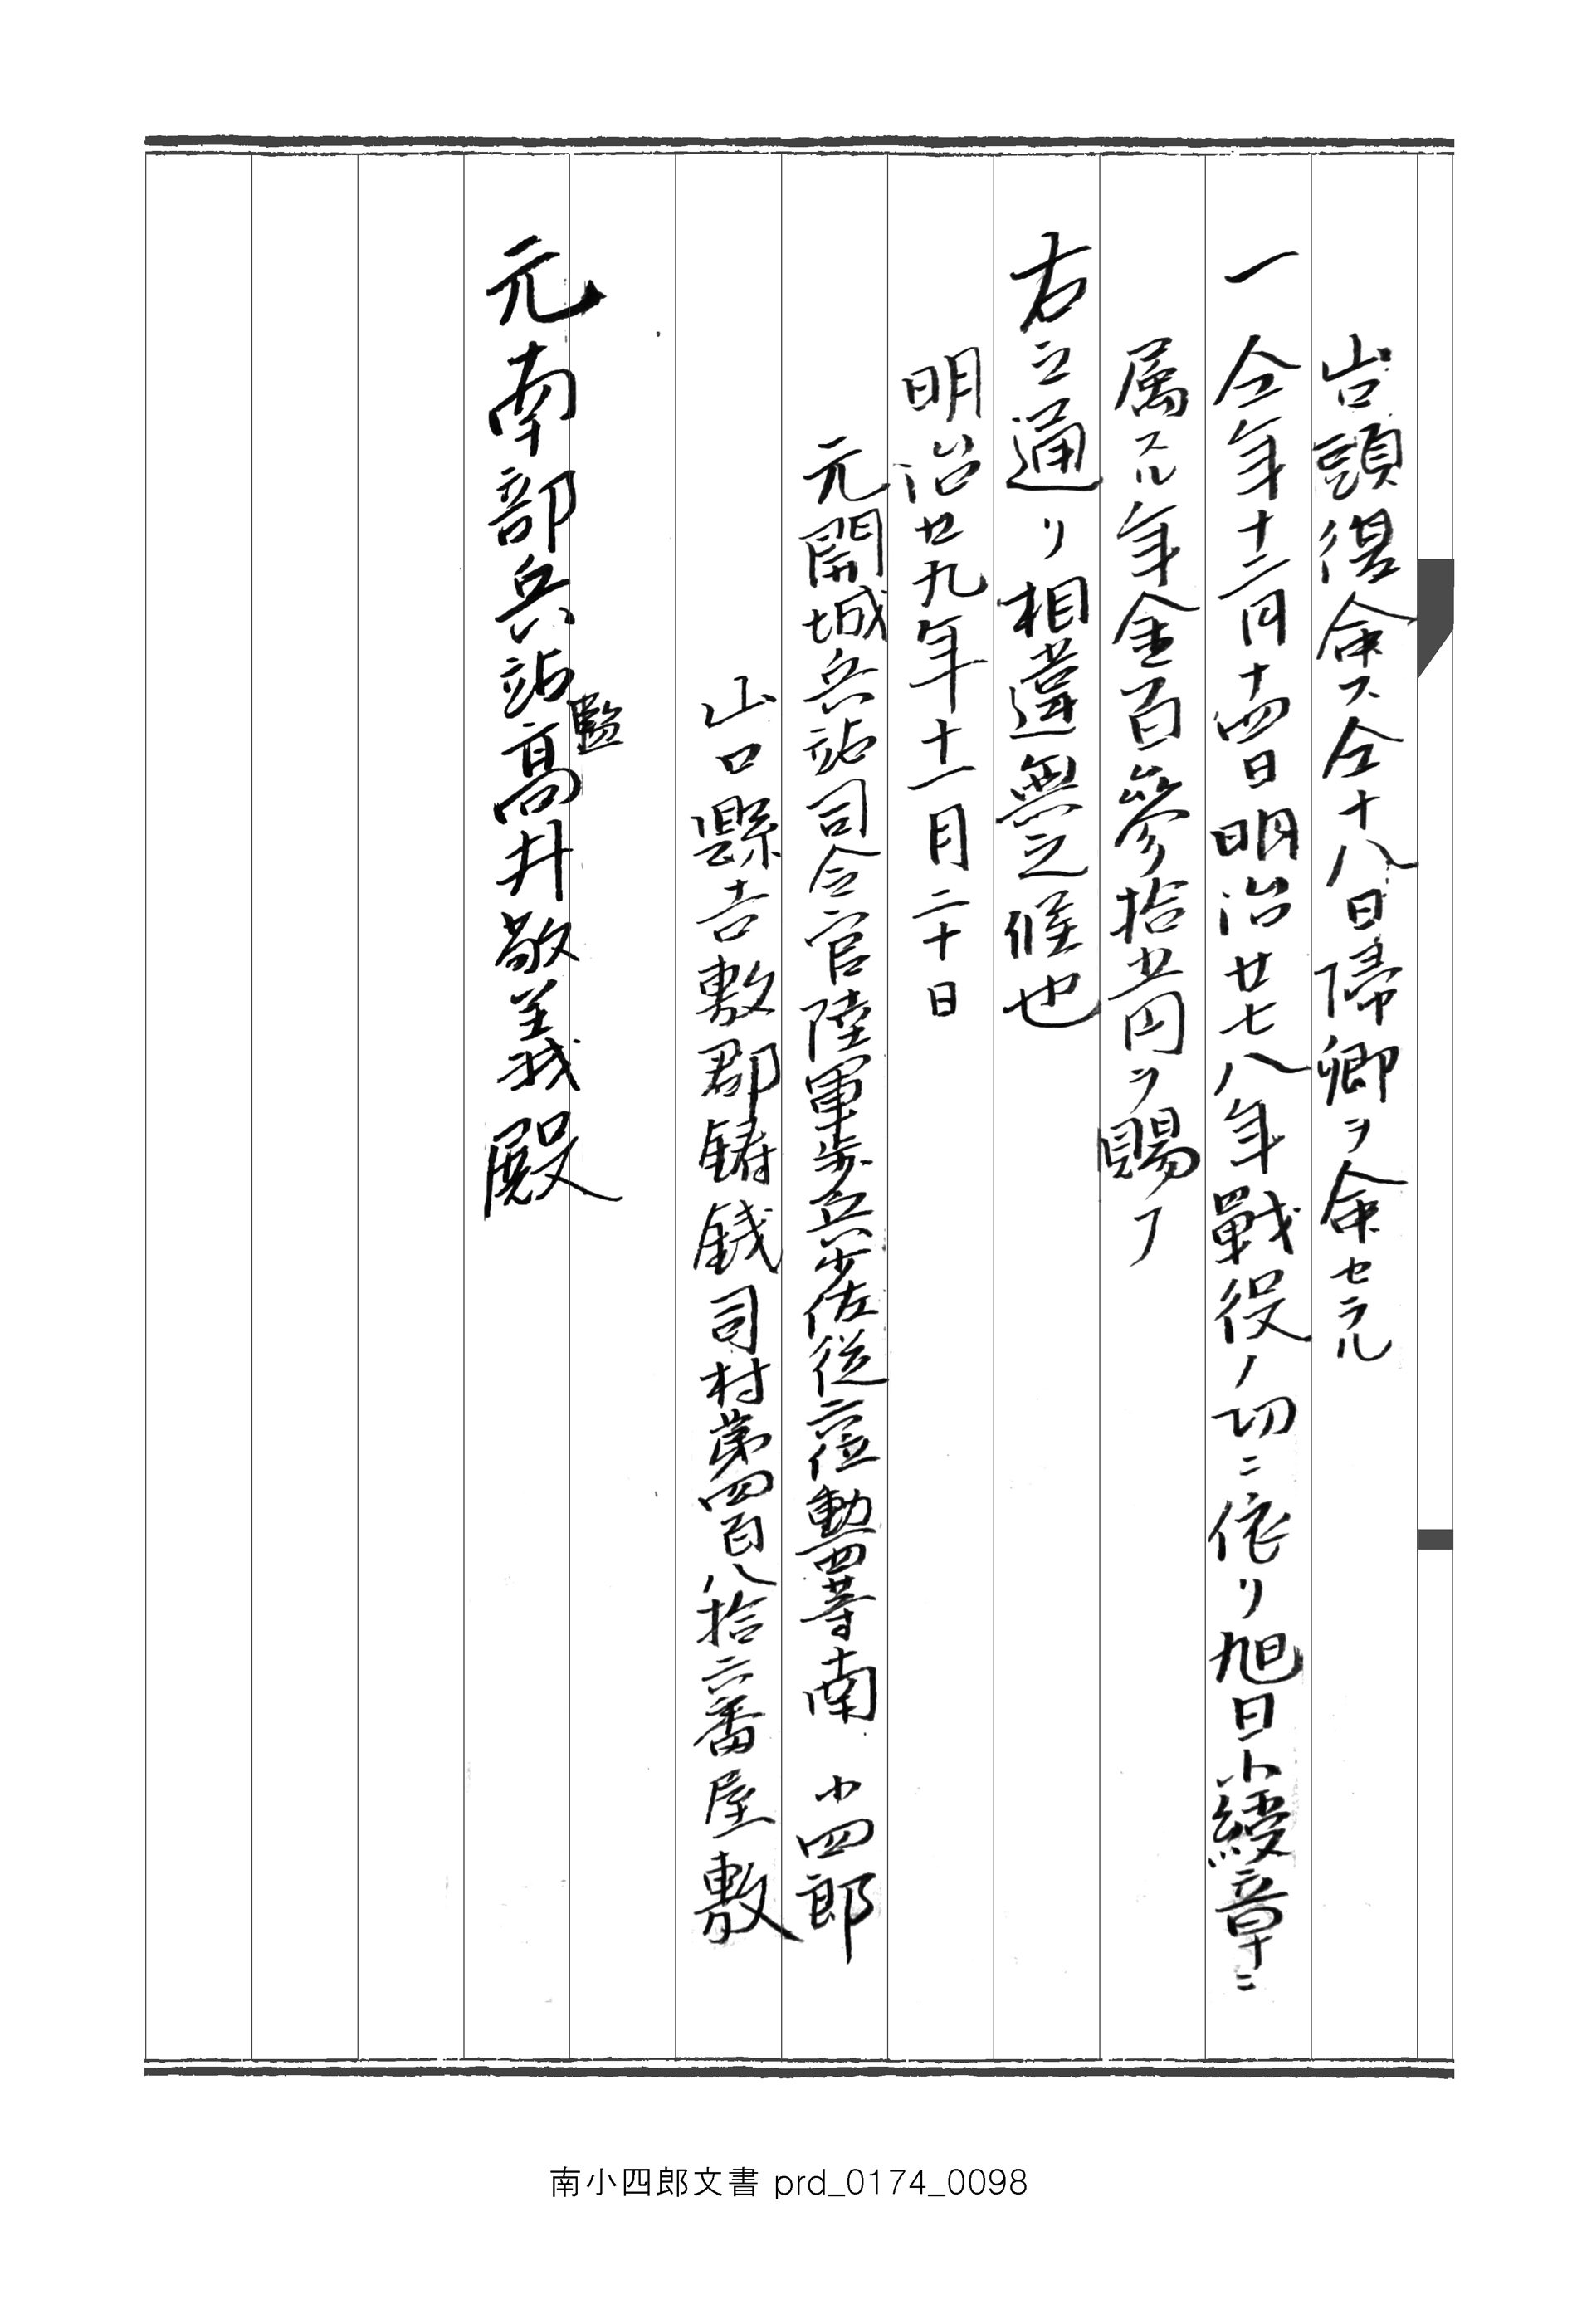 岩頭得命ス仝十八日帰郷ヲ命セラル
一 仝年十二月十四日明治廿七八年戦役ノ功ニ依リ旭日小綬章ニ
属スル年金百参拾五円ヲ賜フ
右之通リ相違無之候也
明治廿九年十一月二十日
元開城兵站司令官陸軍歩兵少佐従六位勲四等南 小四郎
山口縣吉敷郡鋳銭司村第四百八拾六番屋敷
元南部兵站監高井敬義殿
南小四郎文書 prd_0174_0098